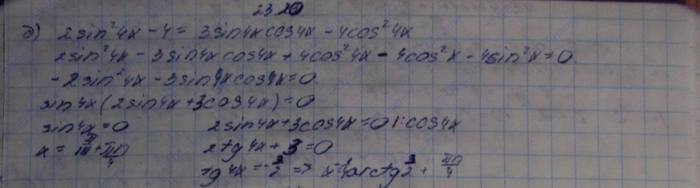 23.20
д) 2sin²4x - 4 = 3sin4x cos4x - 4cos²4x
2sin²4x - 3sin4x cos4x + 4cos²4x - 4cos²x - 4sin²x = 0
- 2sin²4x - 3sin4x cos4x = 0
sin4x (2sin4x + 3cos4x) = 0
sin4x = 0 2sin4x + 3cos4x = 0 | : cos4x
2tg4x + 3 = 0
tg4x = -3/2 =>